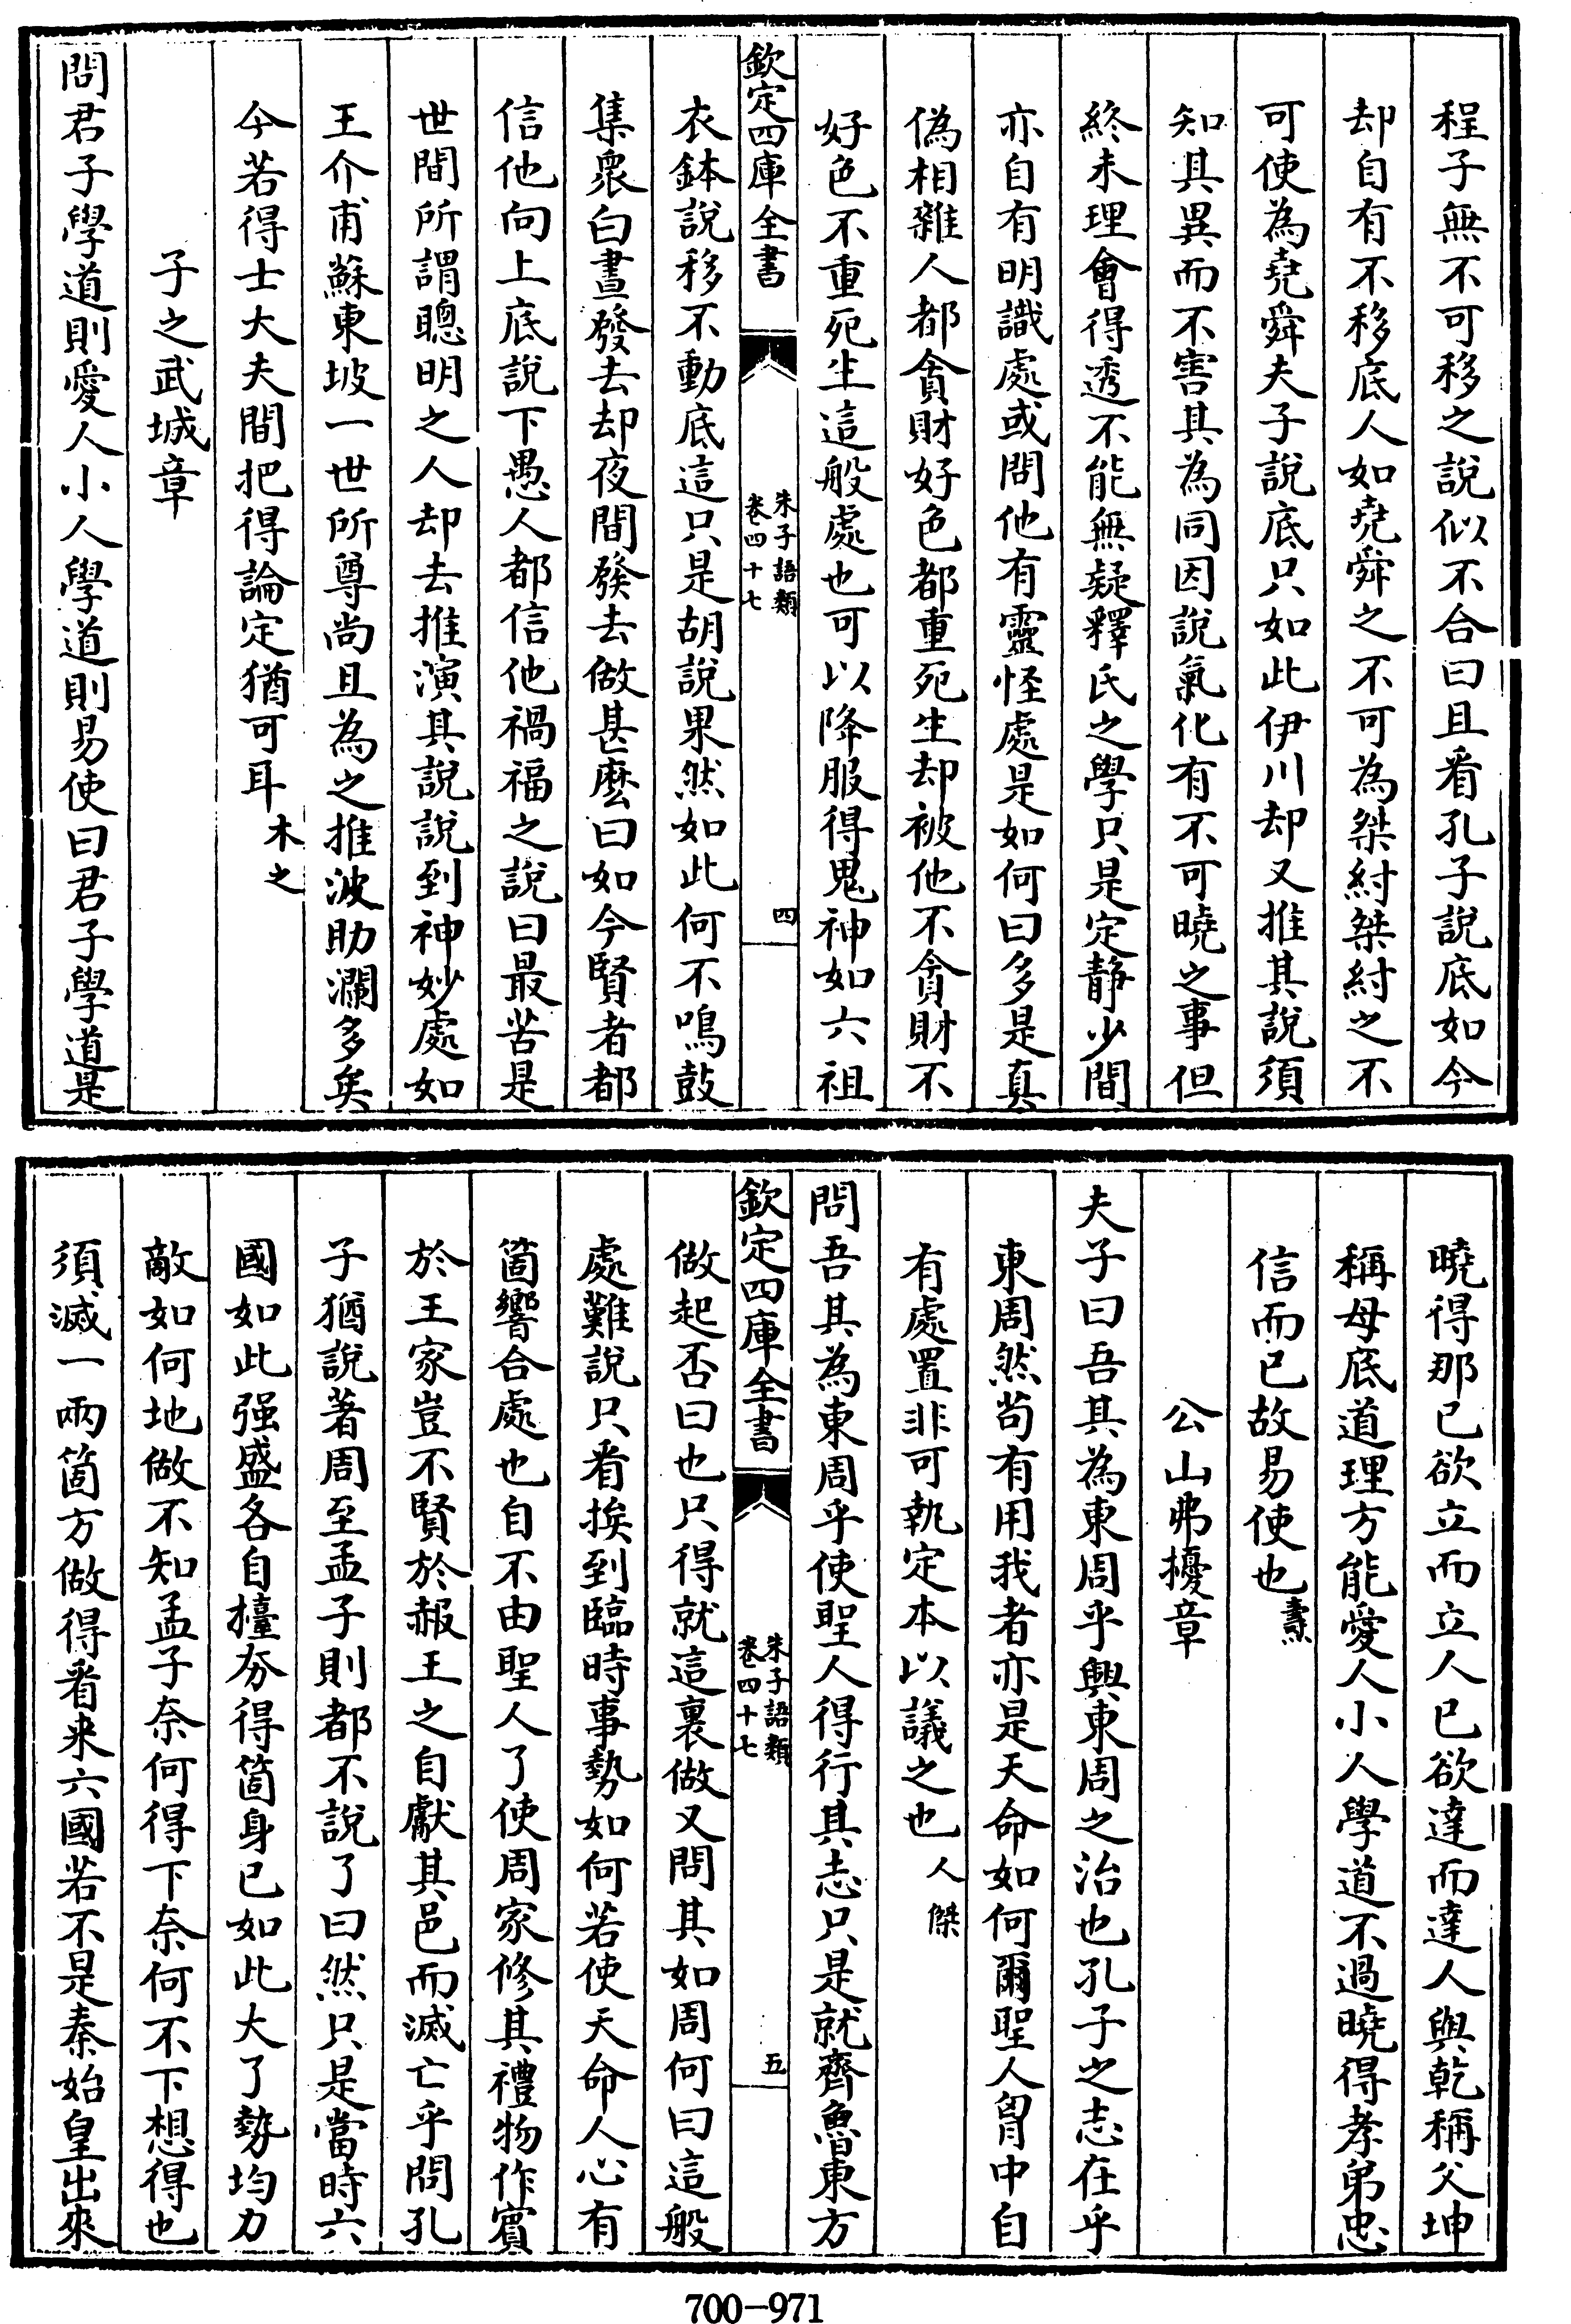 程子無不可移之說似不合曰且看孔子說底如今
却自有不移底人如堯舜之不可為桀紂桀紂之不
可使為堯舜夫子說底只如此伊川却又推其說須
知其異而不害其為同因說氣化有不可曉之事但
終未理會得透不能無疑釋氏之學只是定靜少間
亦自有明識處或問他有靈怪處是如何曰多是真
偽相雜人都貪財好色都重死生却被他不貪財不
好色不重死生這般處也可以降服得鬼神如六祖
欽定四庫全書
朱子語類
卷四十七
四
衣鉢說移不動底這只是胡說果然如此何不鳴鼓
集衆白晝發去却夜間發去做甚麽曰如今賢者都
信他向上底說下愚人都信他禍福之說曰最苦是
世間所謂聰明之人却去推演其說說到神妙處如
王介甫蘇東坡一世所尊尚且為之推波助瀾多矣
今若得士大夫間把得論定猶可耳木之
子之武城章
問君子學道則愛人小人學道則易使曰君子學道是
曉得那已欲立而立人已欲達而達人與乾稱父坤
稱母底道理方能愛人小人學道不過曉得孝弟忠
信而已故易使也燾
公山弗擾章
夫子曰吾其為東周乎興東周之治也孔子之志在乎
東周然茍有用我者亦是天命如何爾聖人胷中自
有處置非可執定本以議之也人傑
問吾其為東周乎使聖人得行其志只是就齊魯東方
欽定四庫全書
朱子語類
卷四十七
五
做起否曰也只得就這裏做又問其如周何曰這般
處難說只看挨到臨時事勢如何若使天命人心有
箇響合處也自不由聖人了使周家修其禮物作賓
於王家豈不賢於赧王之自獻其邑而滅亡乎問孔
子猶說著周至孟子則都不說了曰然只是當時六
國如此强盛各自擡夯得箇身已如此大了勢均力
敵如何地做不知孟子奈何得下奈何不下想得也
須滅一兩箇方做得看来六國若不是秦始皇出來
700-971